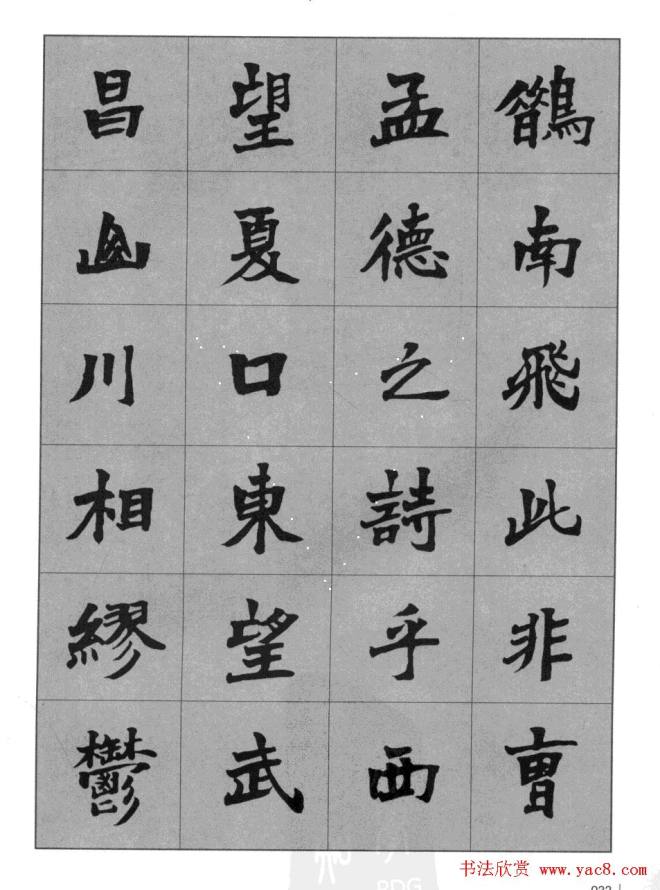 鵲南飛此非曹
孟德之詩乎西
望夏口東望武
昌山川相繆鬱
书法欣赏 www.yac8.com